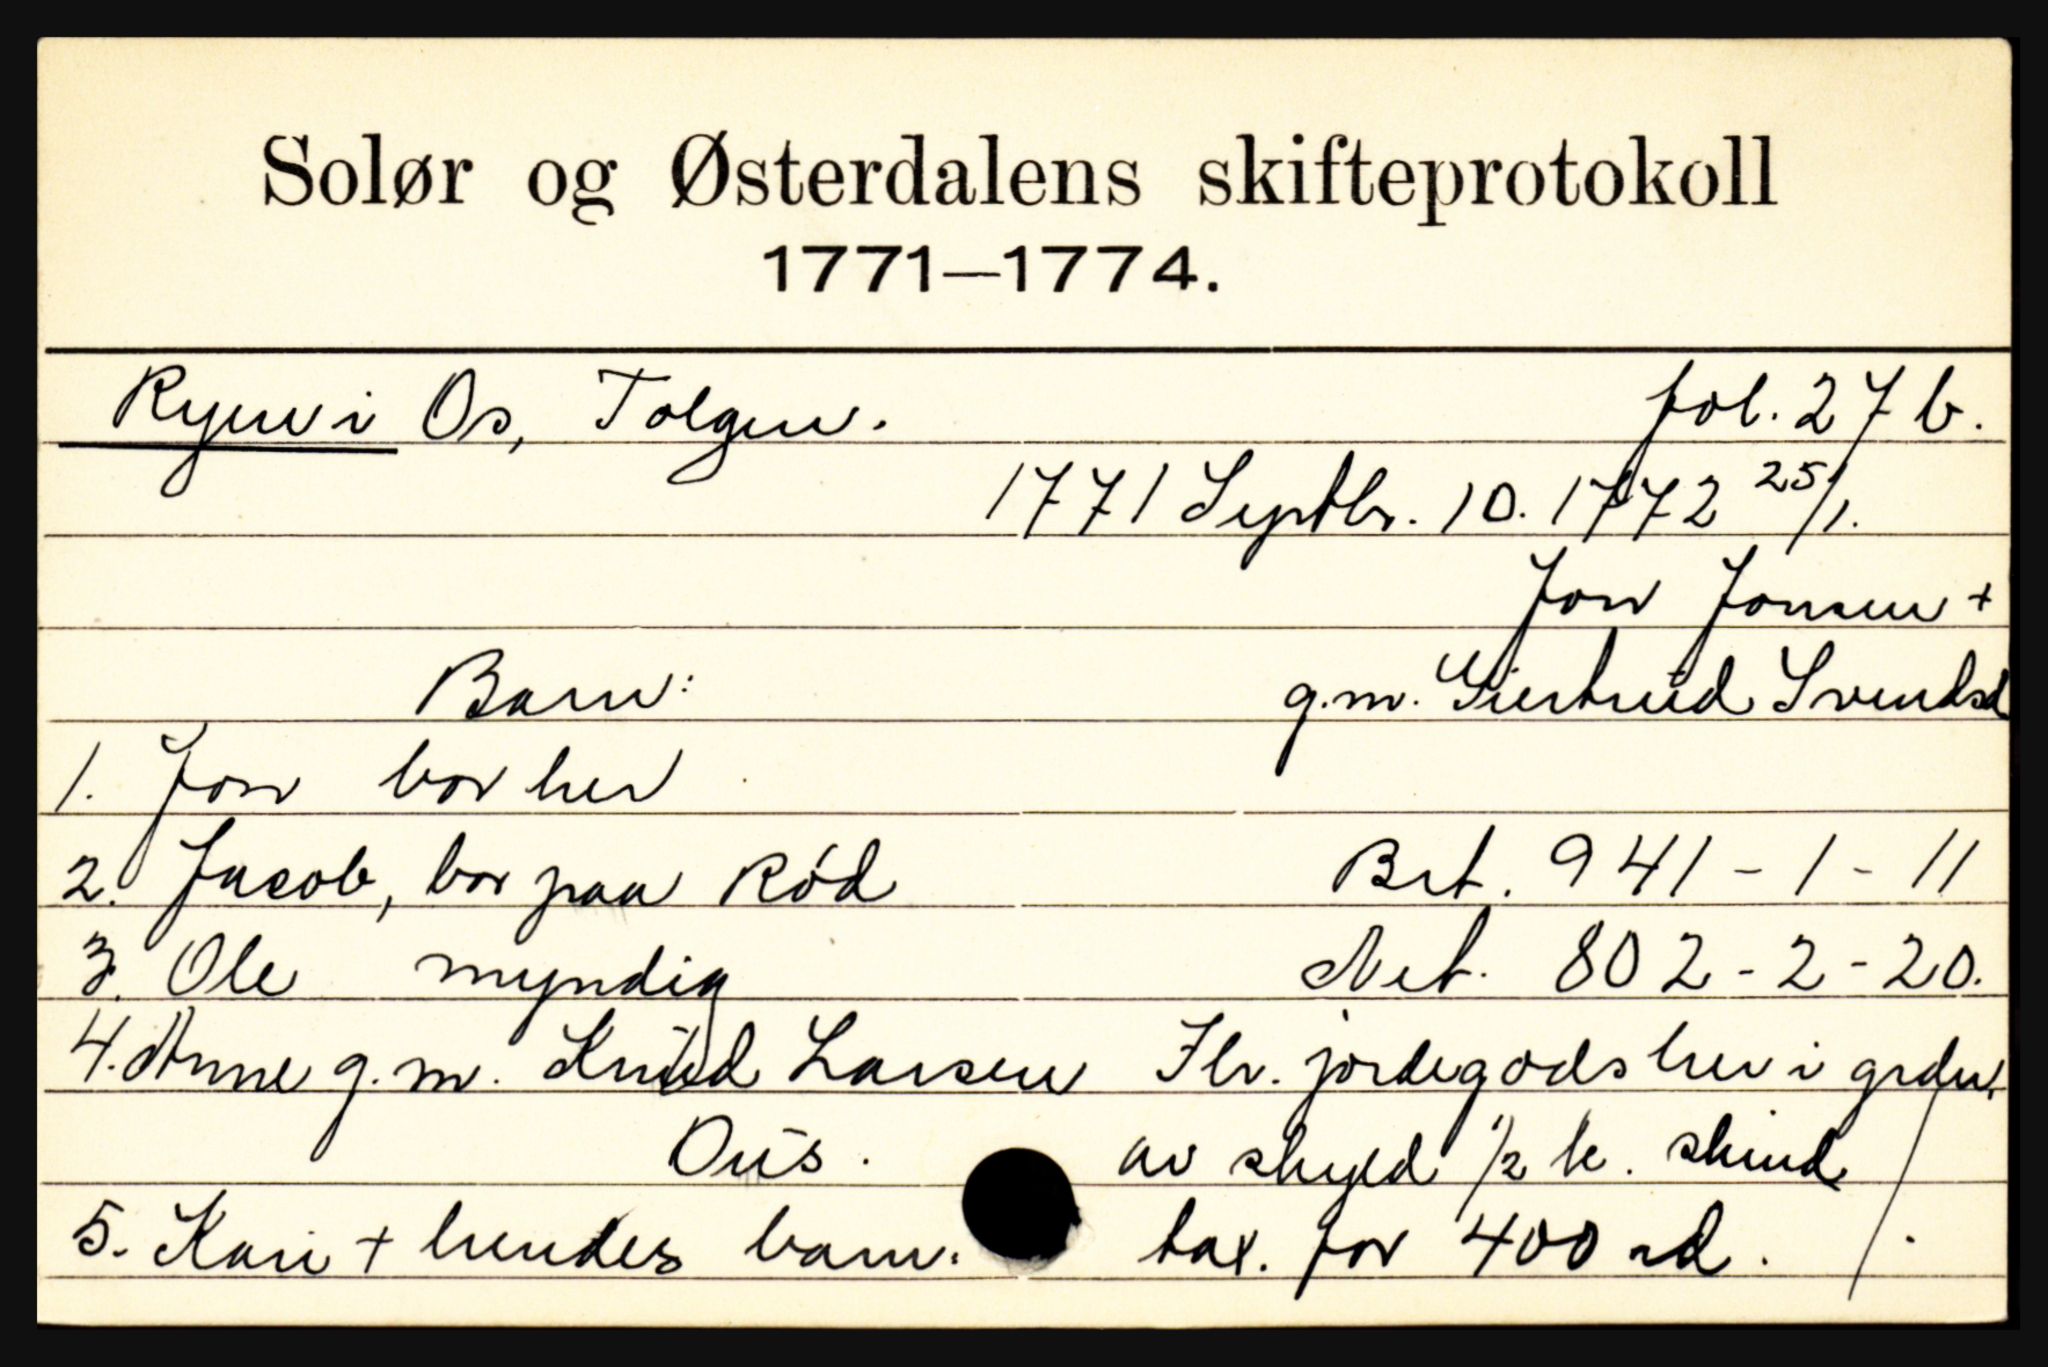 Solør og Østerdalens skifteprotokoll
1771—1774.
Ryen i Os, Tolgen. fol. 27 b.
1771 Septbr. 10. 1772 25/1.
Jon Jonsen +
Barn: g.m. Giertrud Svendsd
1. Jon bor her
2. Jacob, bor paa Rød Brt. 941 - 1 - 11
3. Ole myndig Net. 802 - 2 - 20.
4. Anne g.m. Knud Larsen Ihr. jordegods her i grden
Ous. av skyld 1/2 k. skind
5. Kari + hendes barn: tax. for 400 rd. /.